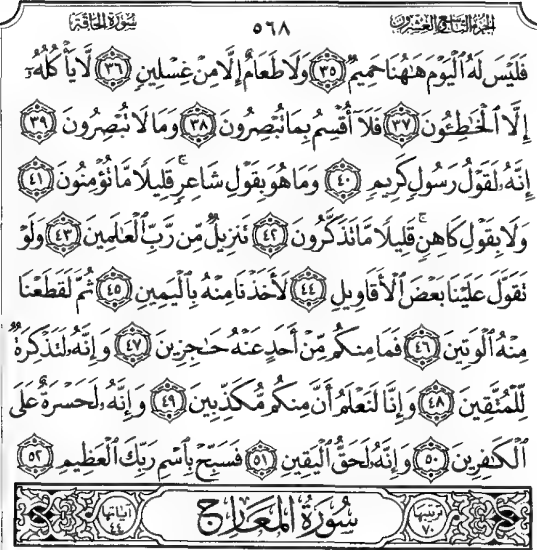 الجزء التاسع والعشرون ٥٦٨ سورة الحاقة
فَلَيْسَ لَهُ ٱلْيَوْمَ هَٰهُنَا حَمِيمٌ ٣٥ وَلَا طَعَامٌ إِلَّا مِنْ غِسْلِينٍ ٣٦ لَّا يَأْكُلُهُۥٓ
إِلَّا ٱلْخَٰطِـُٔونَ ٣٧ فَلَآ أُقْسِمُ بِمَا تُبْصِرُونَ ٣٨ وَمَا لَا تُبْصِرُونَ ٣٩
إِنَّهُۥ لَقَوْلُ رَسُولٍ كَرِيمٍ ٤٠ وَمَا هُوَ بِقَوْلِ شَاعِرٍۚ قَلِيلًا مَّا تُؤْمِنُونَ ٤١
وَلَا بِقَوْلِ كَاهِنٍۚ قَلِيلًا مَّا تَذَكَّرُونَ ٤٢ تَنزِيلٌ مِّن رَّبِّ ٱلْعَٰلَمِينَ ٤٣ وَلَوْ
تَقَوَّلَ عَلَيْنَا بَعْضَ ٱلْأَقَاوِيلِ ٤٤ لَأَخَذْنَا مِنْهُ بِٱلْيَمِينِ ٤٥ ثُمَّ لَقَطَعْنَا
مِنْهُ ٱلْوَتِينَ ٤٦ فَمَا مِنكُم مِّنْ أَحَدٍ عَنْهُ حَٰجِزِينَ ٤٧ وَإِنَّهُۥ لَتَذْكِرَةٌ
لِّلْمُتَّقِينَ ٤٨ وَإِنَّا لَنَعْلَمُ أَنَّ مِنكُم مُّكَذِّبِينَ ٤٩ وَإِنَّهُۥ لَحَسْرَةٌ عَلَى
ٱلْكَٰفِرِينَ ٥٠ وَإِنَّهُۥ لَحَقُّ ٱلْيَقِينِ ٥١ فَسَبِّحْ بِٱسْمِ رَبِّكَ ٱلْعَظِيمِ ٥٢
ترتيبها ٧٠ سُورَةُ المَعَارِجِ آياتها ٤٤